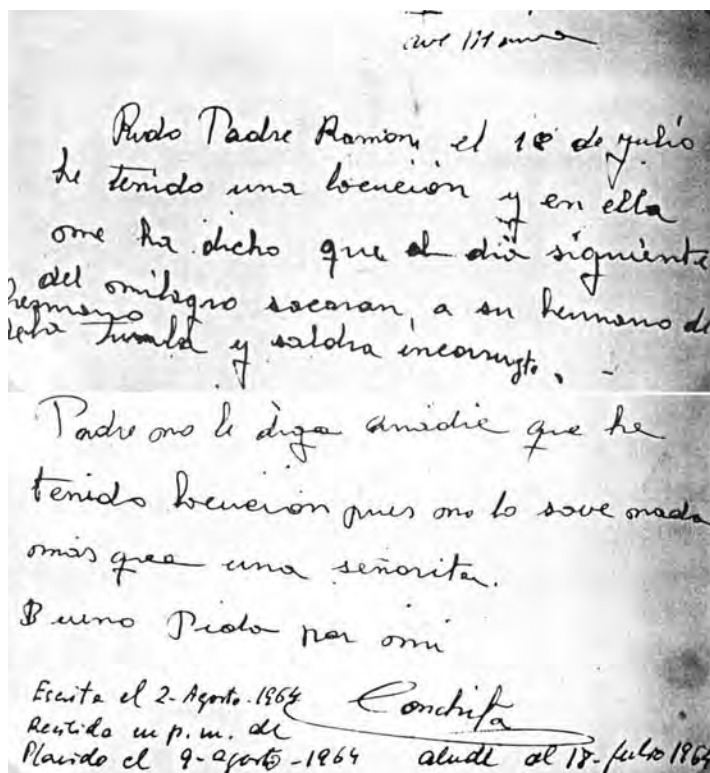 Ave Maria
Rvdo Padre Ramon, el 18 de julio
he tenido una locución y en ella
me ha dicho que el dia siguiente
del milagro sacaran, a su hermano de
hermano
la Tumba y saldra incorrupto.
Padre no le diga anadie que he
tenido locución pues no lo save nada
más que a una señorita.
Bueno Pida por mi
Conchita
Escrita el 2-Agosto-1964
Recibida en p.m. de
Placido el 9-agosto-1964 alude al 18-julio 1964